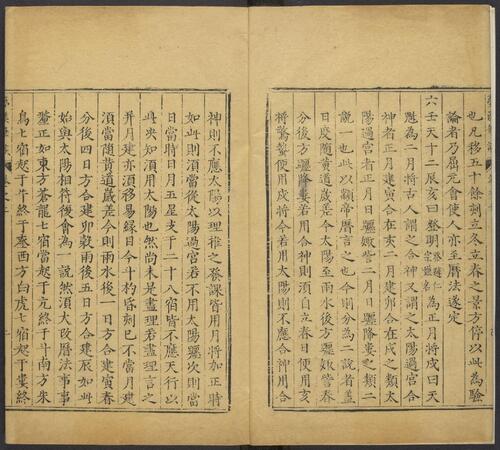 也凡移五十餘刻立冬立春之景方停以此為驗
論者乃屈元會使人亦至曆法遂定
六壬天十二辰亥曰登明宗嫌名為正月將戌曰天
魁為二月將古人謂之合神又謂之太陽過宮合
神者正月建寅合在亥二月建卯合在戌之類太
陽過宮者正月日躔娵訾二月日躔降婁之類二
說一也此以顓帝曆言之也今則分為二說者蓋
日度隨黃道歲差今太陽至雨水後方躔娵訾春
分後方躔降婁若用合神則須自立春日便用亥
將驚蟄便用戌將今若用太陽則不應合神用合
神則不應太陽以理推之發課皆用月將加正時
如此則須當從太陽過宮若不用太陽躔次則當
日當時日月五星支干二十八宿皆不應天行以
此決知須用太陽也然尚未是盡理若盡理言之
并月建亦須移易緣目今斗杓昏刻已不當月建
須當隨黃道歲差今則雨水後一日方合建寅春
分後四日方合建卯穀雨後五日方合建辰如此
始與太陽相符復會為一說然須大改曆法事事
釐正如東方蒼龍七宿當起于亢終于斗南方朱
鳥七宿起于牛終于奎西方白虎七宿起于婁終